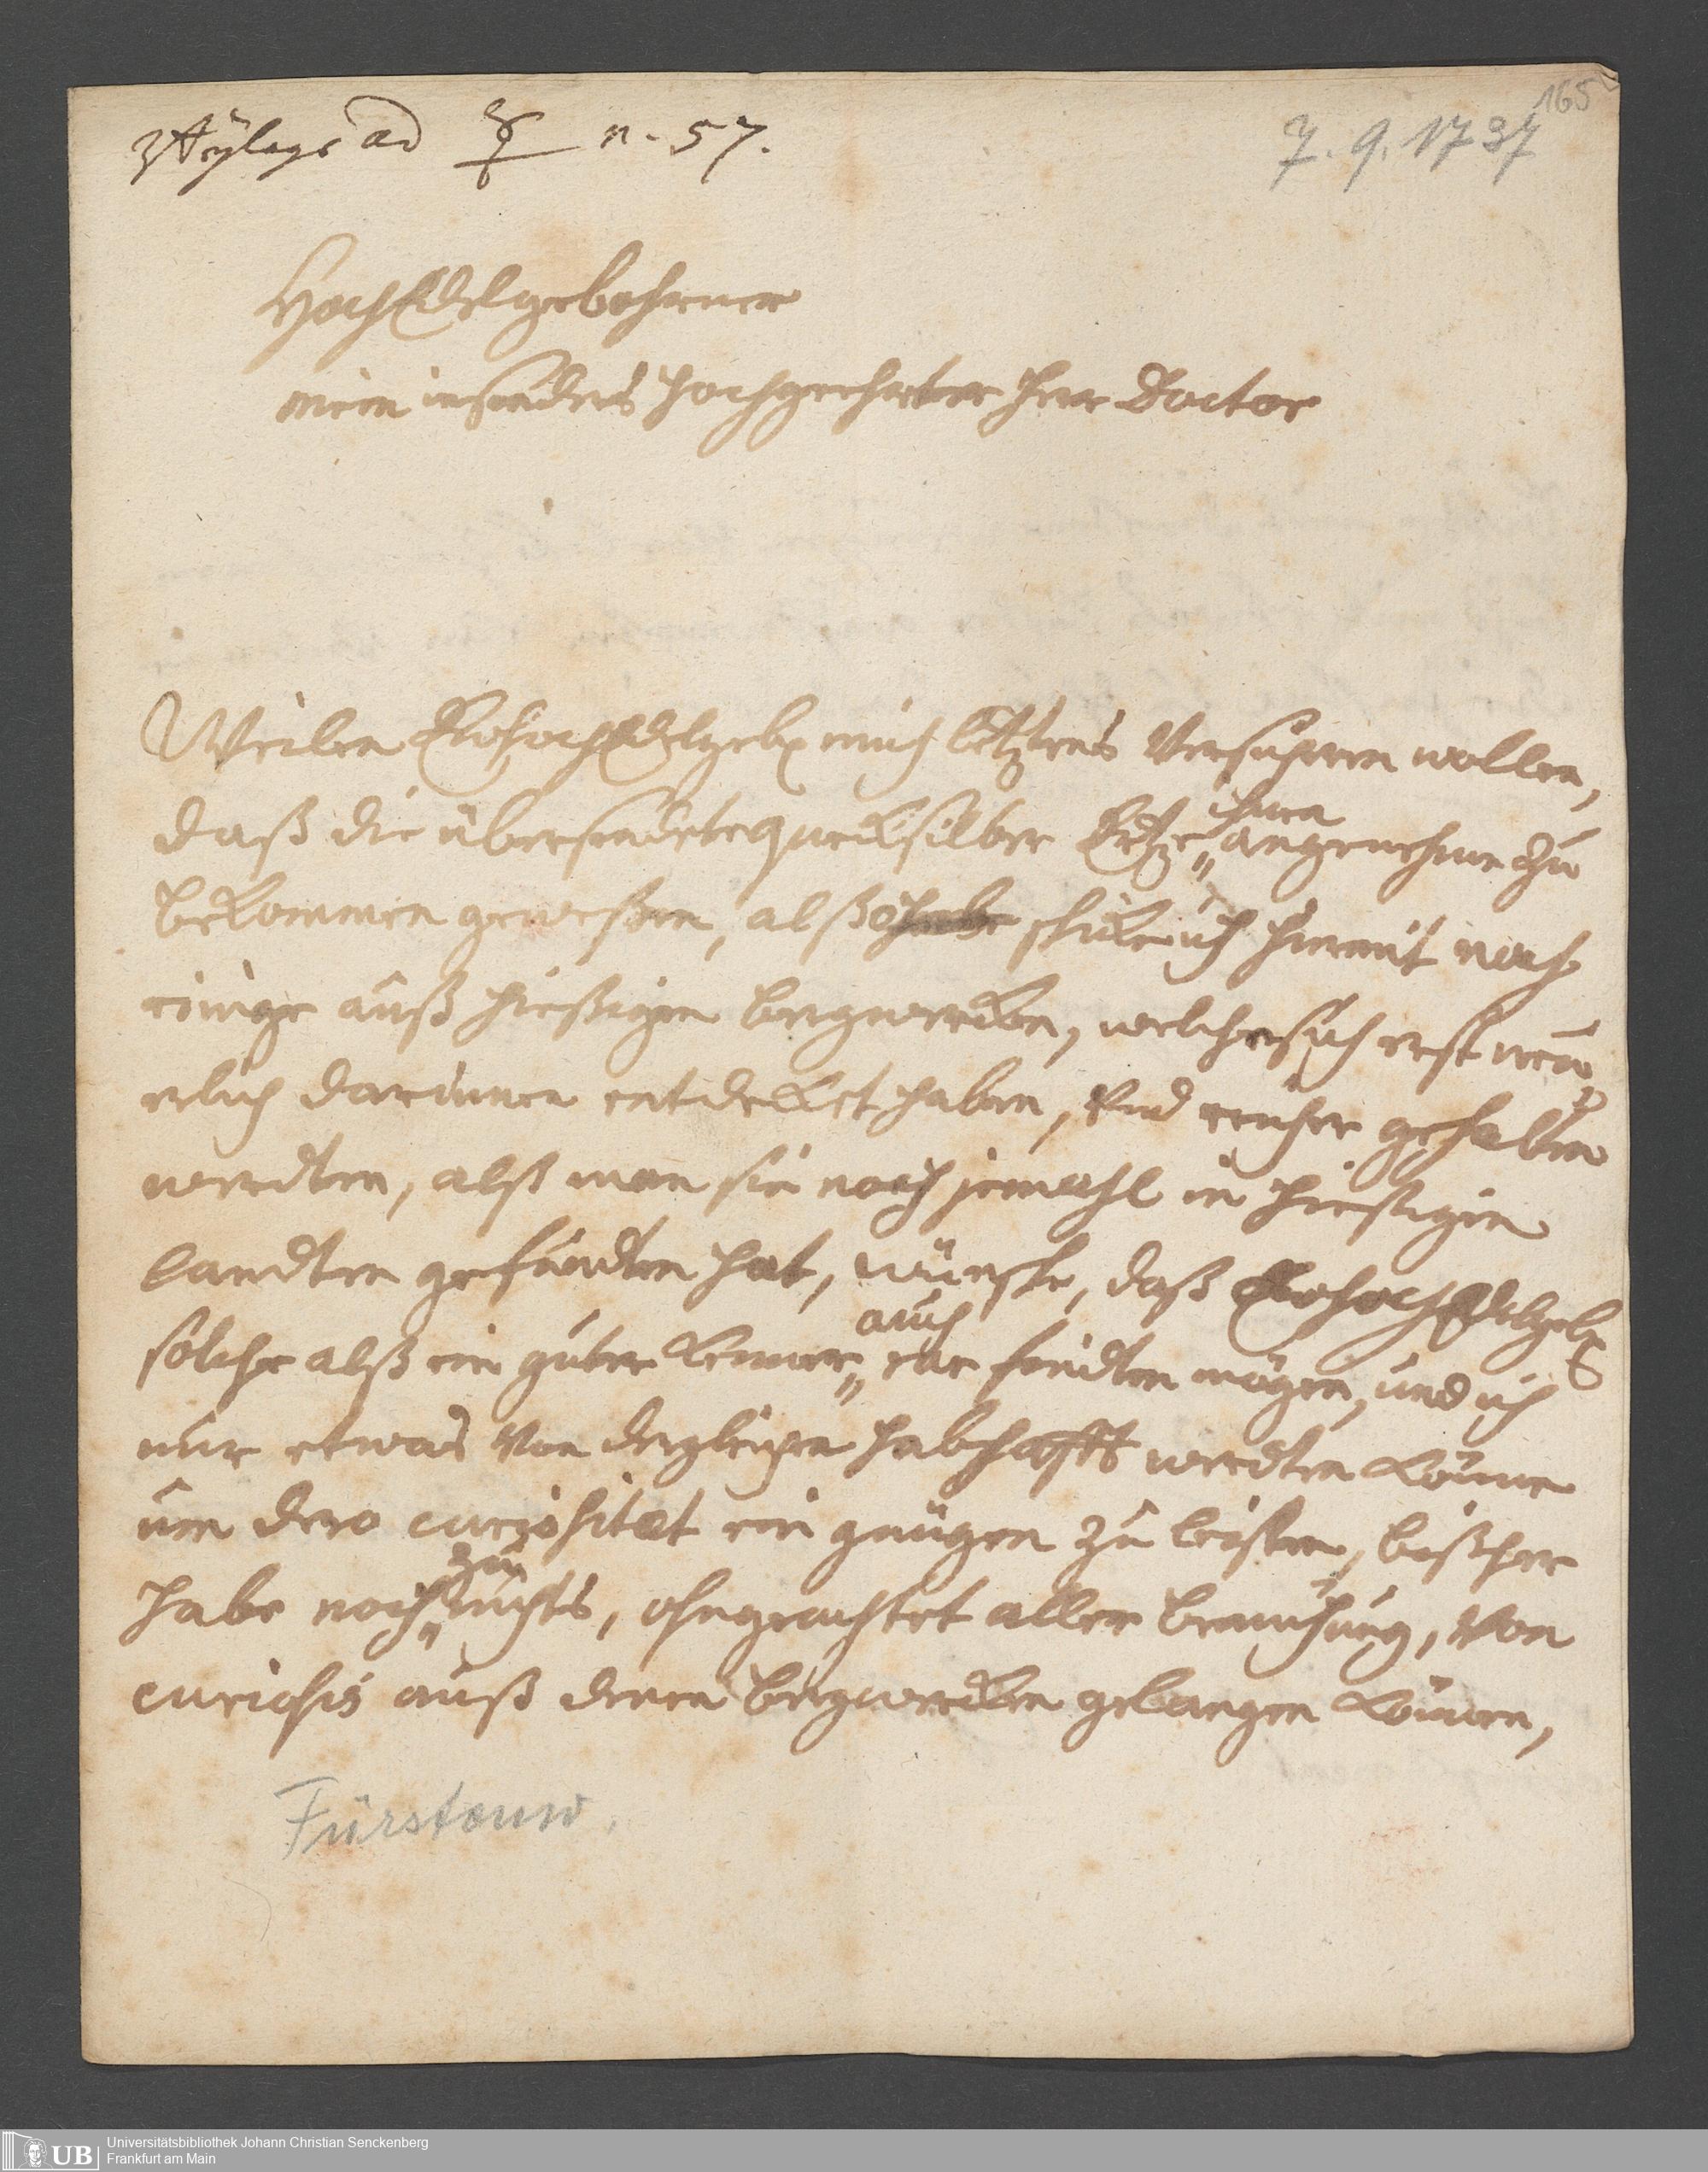 165
Beylage ad n. 57.
7. 9. 1737
HochEdelgebohrner
mein insonders hochgeehrter Herr Doctor
Weilen EwHochEdelgeb mich letztens Versichern wollen,
daß die übersendete quecksilber Ertze ihnen angenehme zu
bekommen geweßen, alßo schicke ich hiermit noch
einige auß hießigen bergwercken, welche sich erst neü-
erlich darinnen entdecket haben, Und reicher gehalten
werdten, alß man sie noch jemahl in hiesigen
landten gefundten hat, wünsche, daß EwHochEdelgeb
solche alß ein guter kenner auch rar findten mögen, und ich
nur etwas Von dergleichen habhafft werdten könne
um dero curiositæt ein gnügen zu leisten, bißher
habe noch zu nichts, ohngeachtet aller bemühung, Von
curiosis auß denen bergwercken gelangen können,
Fürstenw.
UB Universitätsbibliothek Johann Christian Senckenberg
Frankfurt am Main